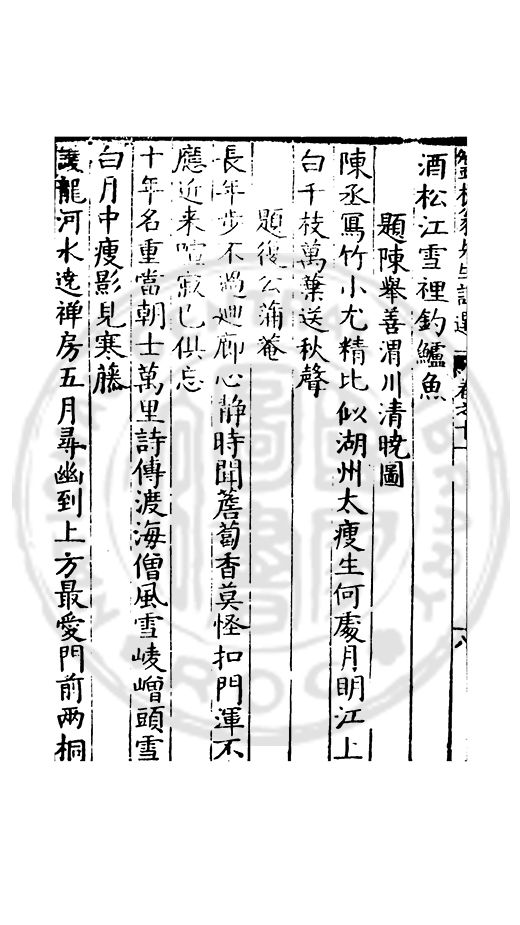 酒松江雪裡釣鱸魚
題陳舉善渭川清曉圖
陳丞冩竹小尤精比似湖州太瘦生何處月明江上
白千枝萬葉送秋聲
題復公蒲菴
長年步不過廊心静時聞薝蔔香莫怪扣門渾不
應近来喧寂已俱忘
十年名重當朝士萬里詩傳渡海僧風雪崚嶒頭雪
白月中瘦影見寒藤
護龍河水遶禅房五月尋幽到上方最愛門前兩桐